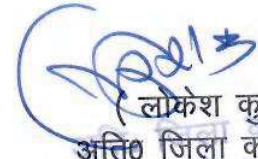 ( लोकेश कु
अति० जिला क